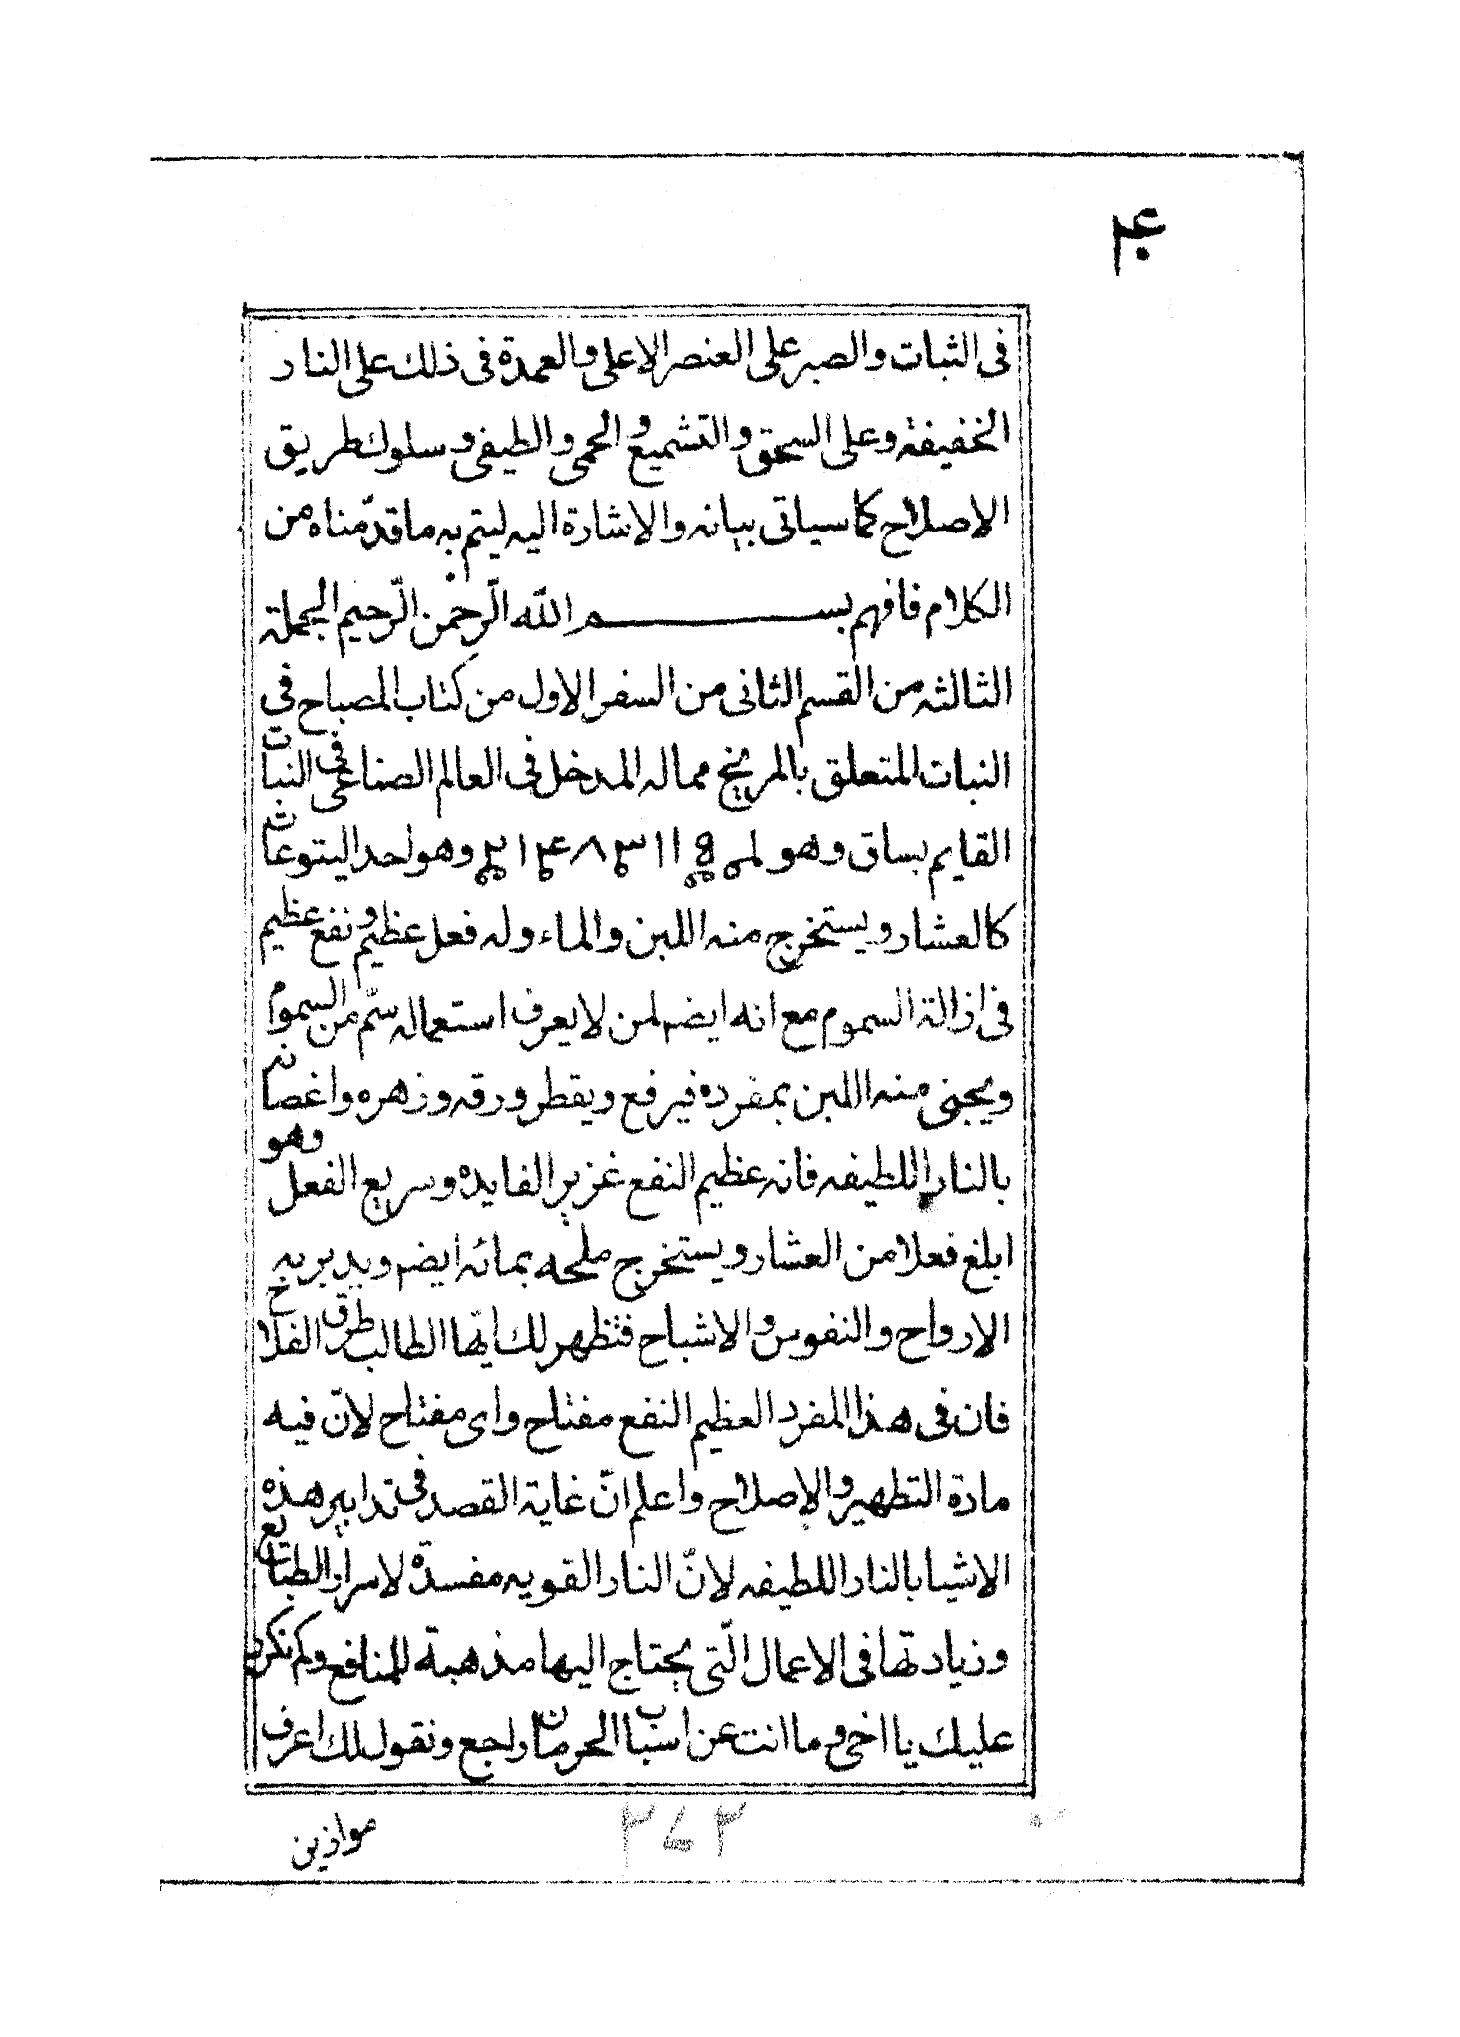 فى الثبات والصبر على العنصر الاعلى والعمدة فى ذلك على النار
الخفيفة وعلى السحق والتشميع والحمى والطيفى وسلوك طريق
الاصلاح كما سياتى بيانه والاشارة اليه ليتم به ما قدّمناه من
الكلام فافهم بسم الله الرّحمن الرّحيم الجملة
الثالثه من القسم الثانى من السفر الاول من كتاب المصباح فى
النبات المتعلق بالمريخ مماله المدخل فى العالم الصناعى فى النبات
القايم بساق وهو وهو احد اليتوعات
كالعشار ويستخرج منه اللبن والماء وله فعل عظيم ونفع عظيم
فى ازالة السموم مع انه ايضا لمن لا يعرف استعماله سمّ من السموم
ويجنى منه اللبن بمفرده فيرفع ويقطر ورقه وزهره واغصانه
بالنار اللطيفه فانه عظيم النفع غزير الفايده وسريع الفعل وهو
ابلغ فعلا من العشار ويستخرج ملحه بمائه ايضا ويدبر به
الارواح والنفوس والاشباح فتظهر لك ايّها الطالب طرق الفلاح
فان فى هذا المفرد العظيم النفع مفتاح واى مفتاح لانّ فيه
مادة التطهير والاصلاح واعلم انّ غاية القصد فى تدابير هذه
الاشيا بالنار اللطيفه لانّ النار القويه مفسدة لاسرار الطبائع
وزيادتها فى الاعمال الّتى يحتاج اليها مذهبة للمنافع وكم نكرر
عليك يا اخى وما انت عن اسباب الحرمان راجع ونقول لك اعرف
موازين